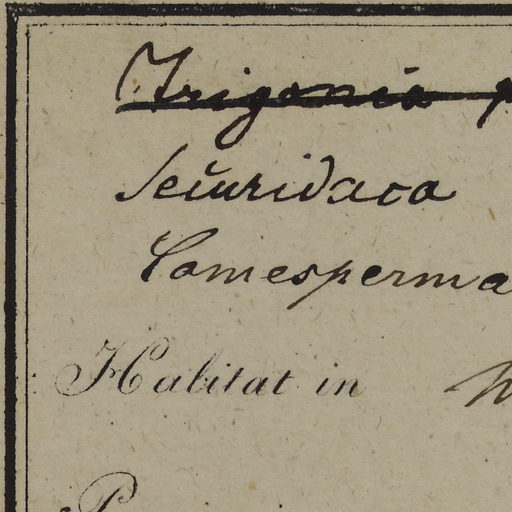 Trigonia
Securidaca
Comesperma
Habitat in